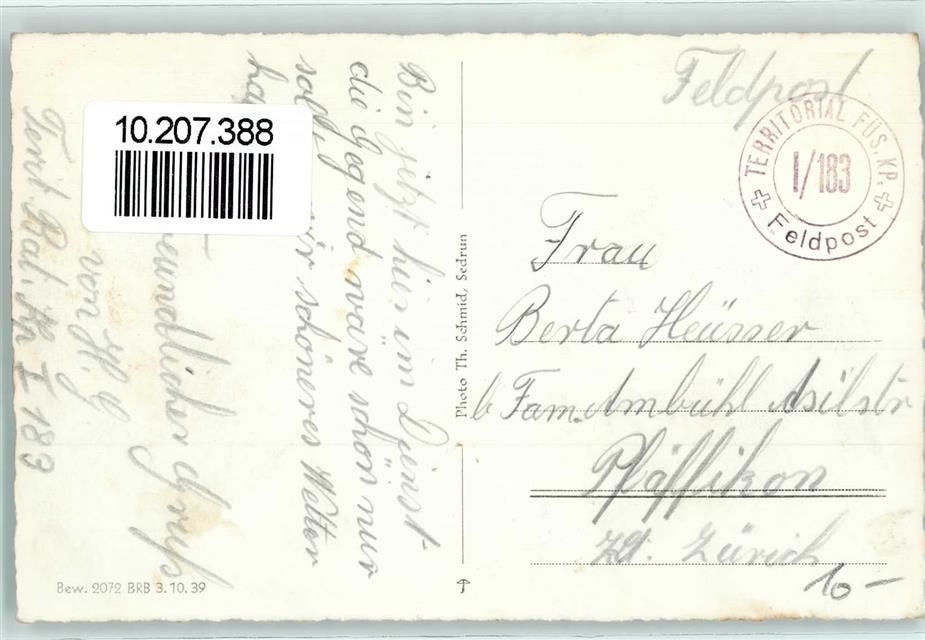 Feldpost
TERRITORIAL FÜS. KP.
I/183
Feldpost
10.207.388
Bin jetzt hier im Dienst
die Gegend wäre schön nur
sollt wir schöneres Wetter
Gruss
von
Territ. Bat. Kp I 183
Frau
Berta Heüsser
b Fam Ambühl Asilstr
Pfäffikon
Kt. Zürich
10 –
Photo Th. Schmid, Sedrun
Bew. 2072 BRB 3.10.39